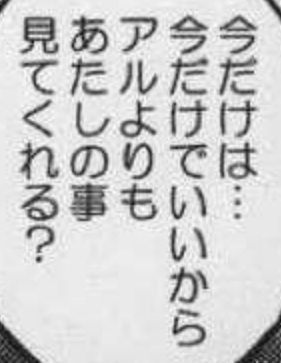 今だけは…
今だけでいいから
アルよりも
あたしの事
見てくれる?